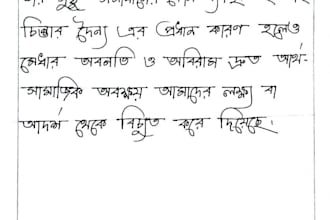 চিন্তার দৈন্য এর প্রধান কারণ হলেও
মেধার অবনতি ও অবিরাম দ্রুত আর্থ-
সামাজিক অবক্ষয় আমাদের লক্ষ্য বা
আদর্শ থেকে বিচ্যুত করে দিয়েছে।